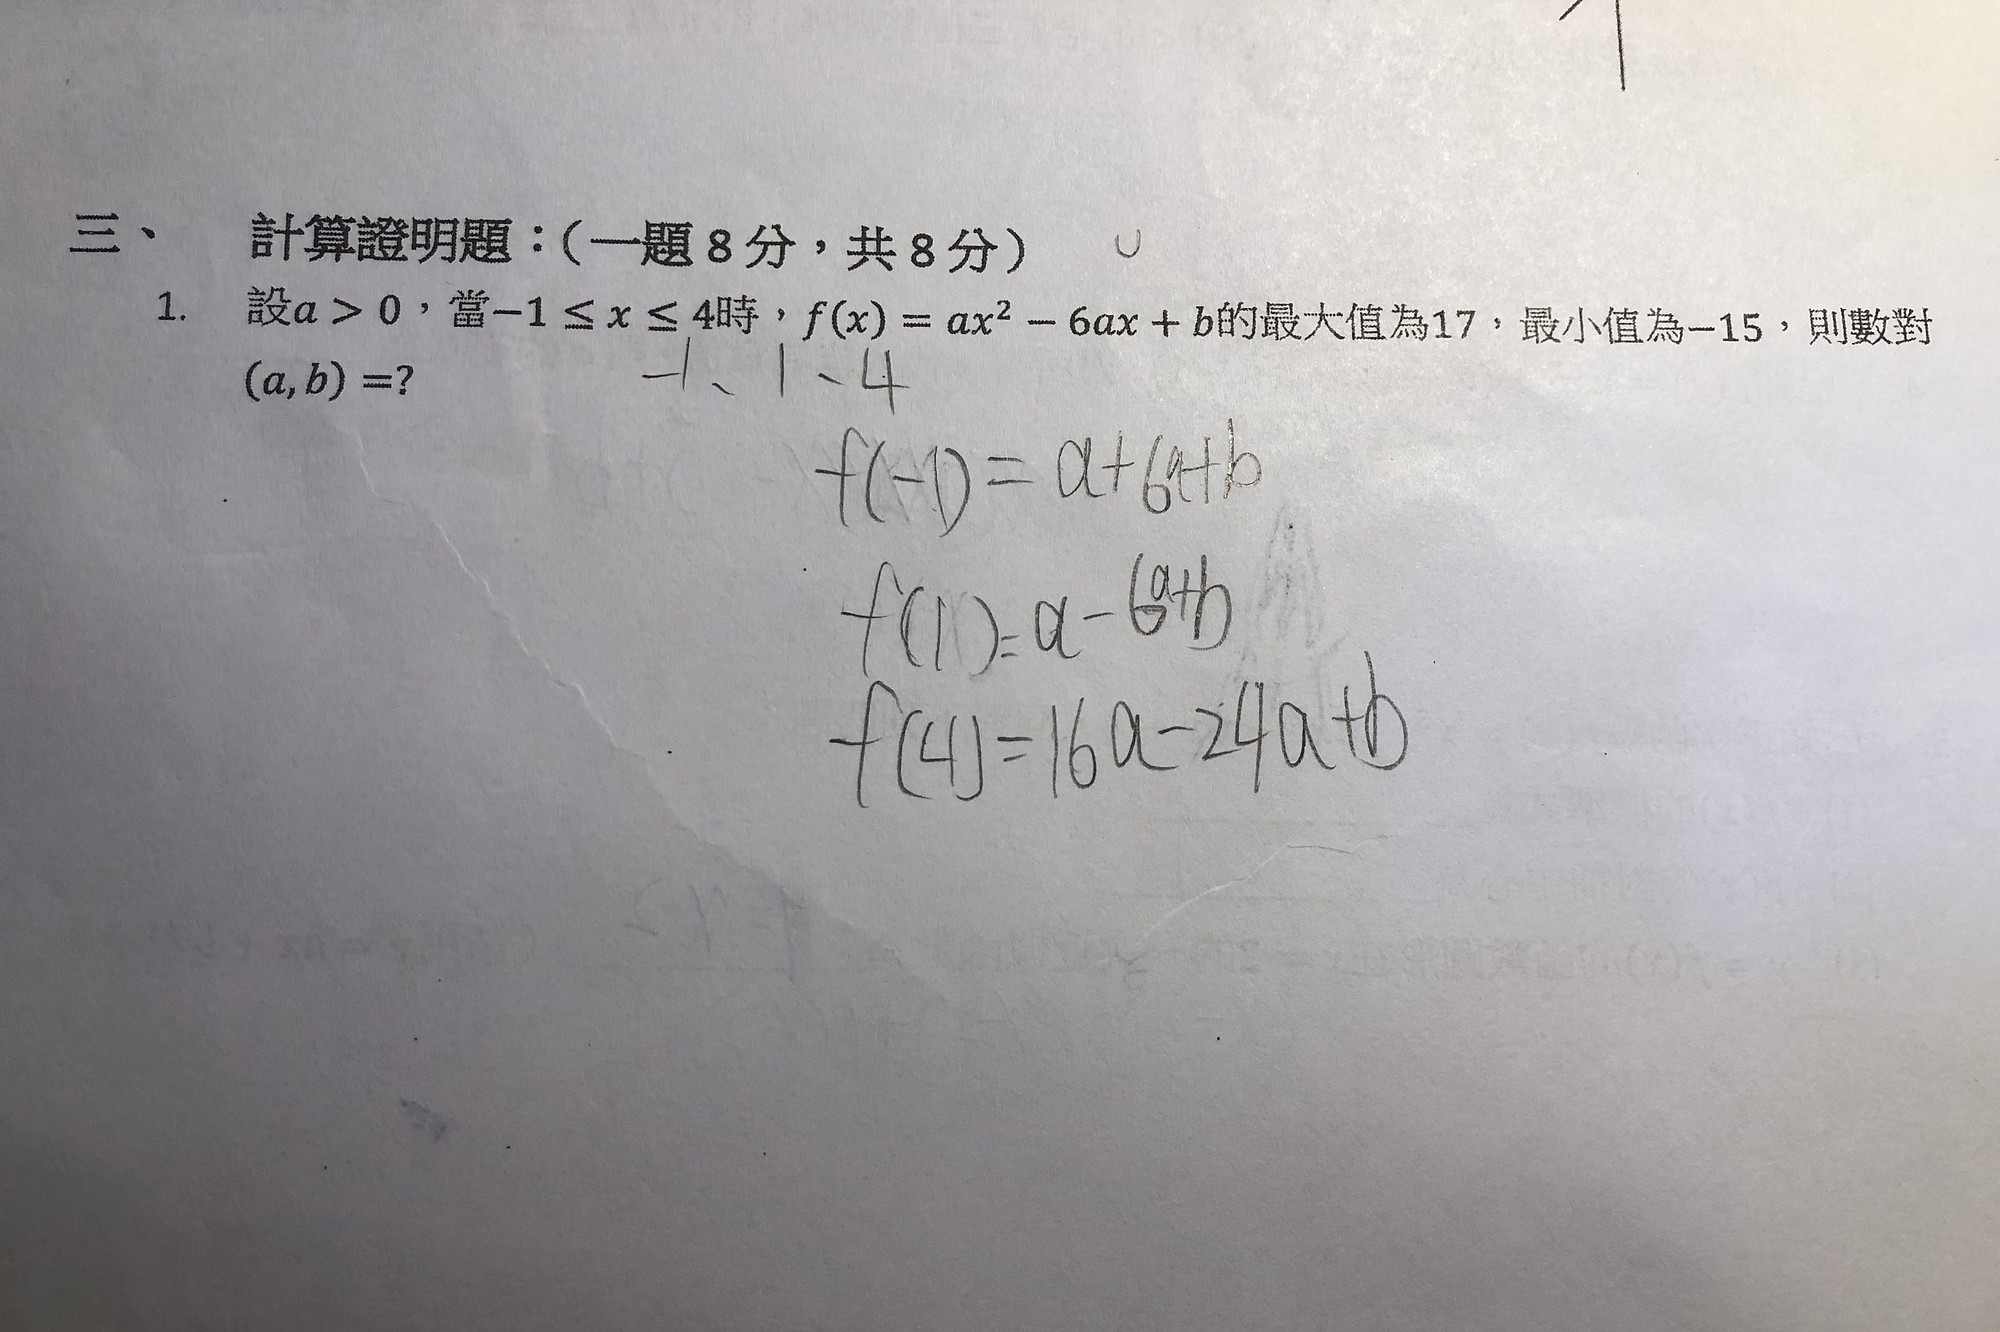 三、 計算證明題：（一題 8 分，共 8 分）
1. 設a > 0，當−1 ≤ x ≤ 4時，f(x) = ax² − 6ax + b的最大值為17，最小值為−15，則數對
(a, b) =?
-1、1、4
f(-1) = a+6a+b
f(1) = a-6a+b
f(4) = 16a-24a+b